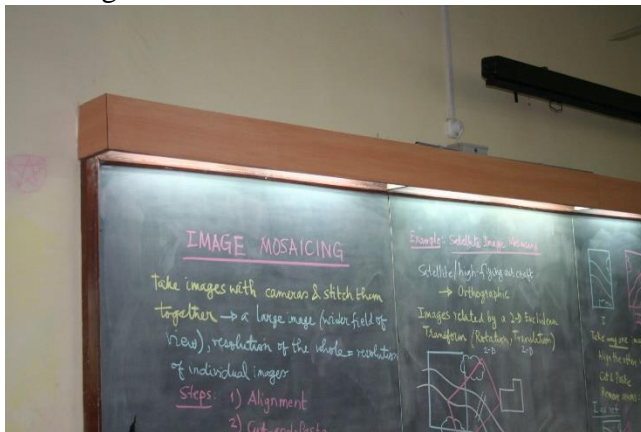 IMAGE MOSAICING
Take images with cameras & stitch them
together → a large image (wider field of
view), resolution of the whole = resolution
of individual images
Steps: 1) Alignment
2) Cut-and-Paste
Example: Satellite Image Mosaicing
Satellite/high-flying aircraft
→ Orthographic
Images related by a 2-D Euclidean
Transform (Rotation, Translation)
2-D 2-D
I
Take any one
Align the other
Cut & Paste
Remove seams